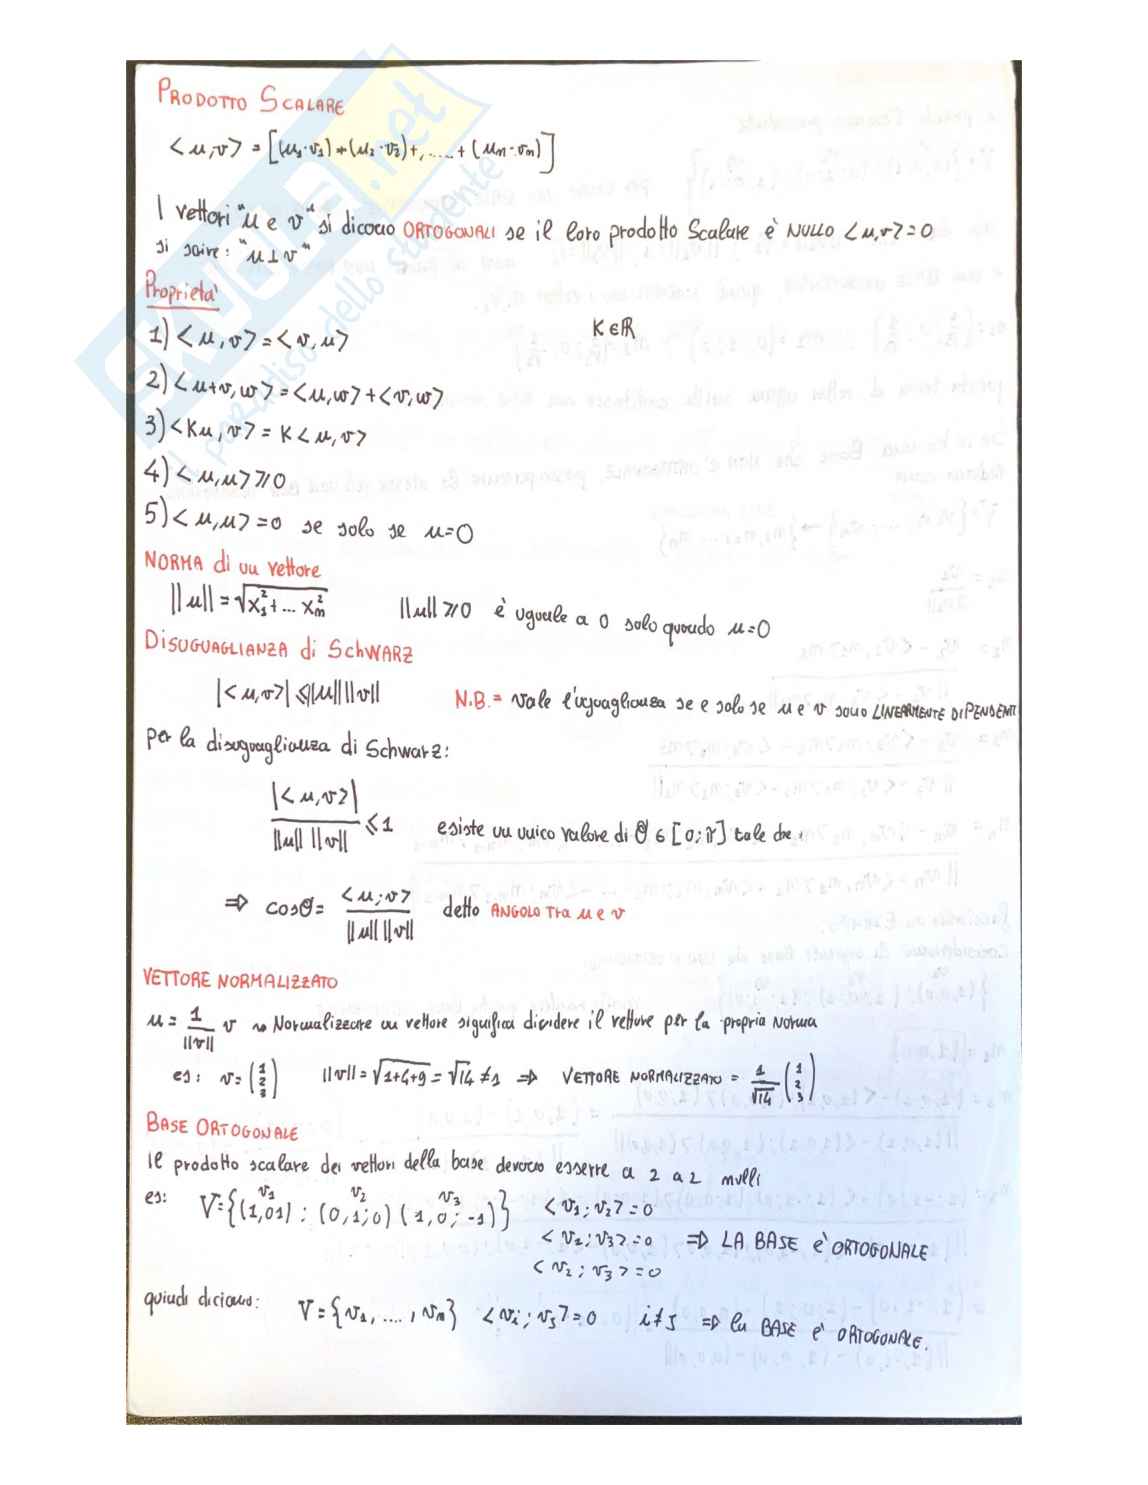 PRODOTTO SCALARE
<u,v> = [(u1·v1)+(u2·v2)+,.....+(un·vn)]
I vettori "u e v" si dicono ORTOGONALI se il loro prodotto Scalare è NULLO <u,v>=0
si scrive: "u⊥v"
Proprietà
K∈ℝ
1) <u,v>=<v,u>
2) <u+v,w>=<u,w>+<v,w>
3) <Ku,v>=K<u,v>
4) <u,u>≥0
5) <u,u>=0 se solo se u=0
NORMA di un vettore
||u||=√x1²+...xn² ||u||≥0 è uguale a 0 solo quando u=0
DISUGUAGLIANZA di SchWARZ
|<u,v>|≤||u|| ||v|| N.B.= Vale l'uguaglianza se e solo se u e v sono LINEARMENTE DIPENDENTI
per la disuguaglianza di Schwarz:
|<u,v>| / ||u|| ||v|| ≤1 esiste un unico valore di θ∈[0;π] tale che:
⇒ cosθ= <u;v> / ||u|| ||v|| detto ANGOLO TRA u e v
VETTORE NORMALIZZATO
u= 1/||v|| v ~> Normalizzare un vettore significa dividere il vettore per la propria norma
es: v=(1 2 3) ||v||=√1+4+9=√14≠1 ⇒ VETTORE NORMALIZZATO = 1/√14 (1 2 3)
BASE ORTOGONALE
il prodotto scalare dei vettori della base devono esserre a 2 a 2 nulli
v1 v2 v3
es: V={(1,01) ; (0,1;0) (1,0;-1)} <v1;v2>=0
<v2;v3>=0 ⇒ LA BASE è ORTOGONALE
<v2;v3>=0
quindi diciamo: V={v1,....,vn} <vi;vj>=0 i≠j ⇒ la BASE è ORTOGONALE.
SKUOLA.net
il paradiso dello studente